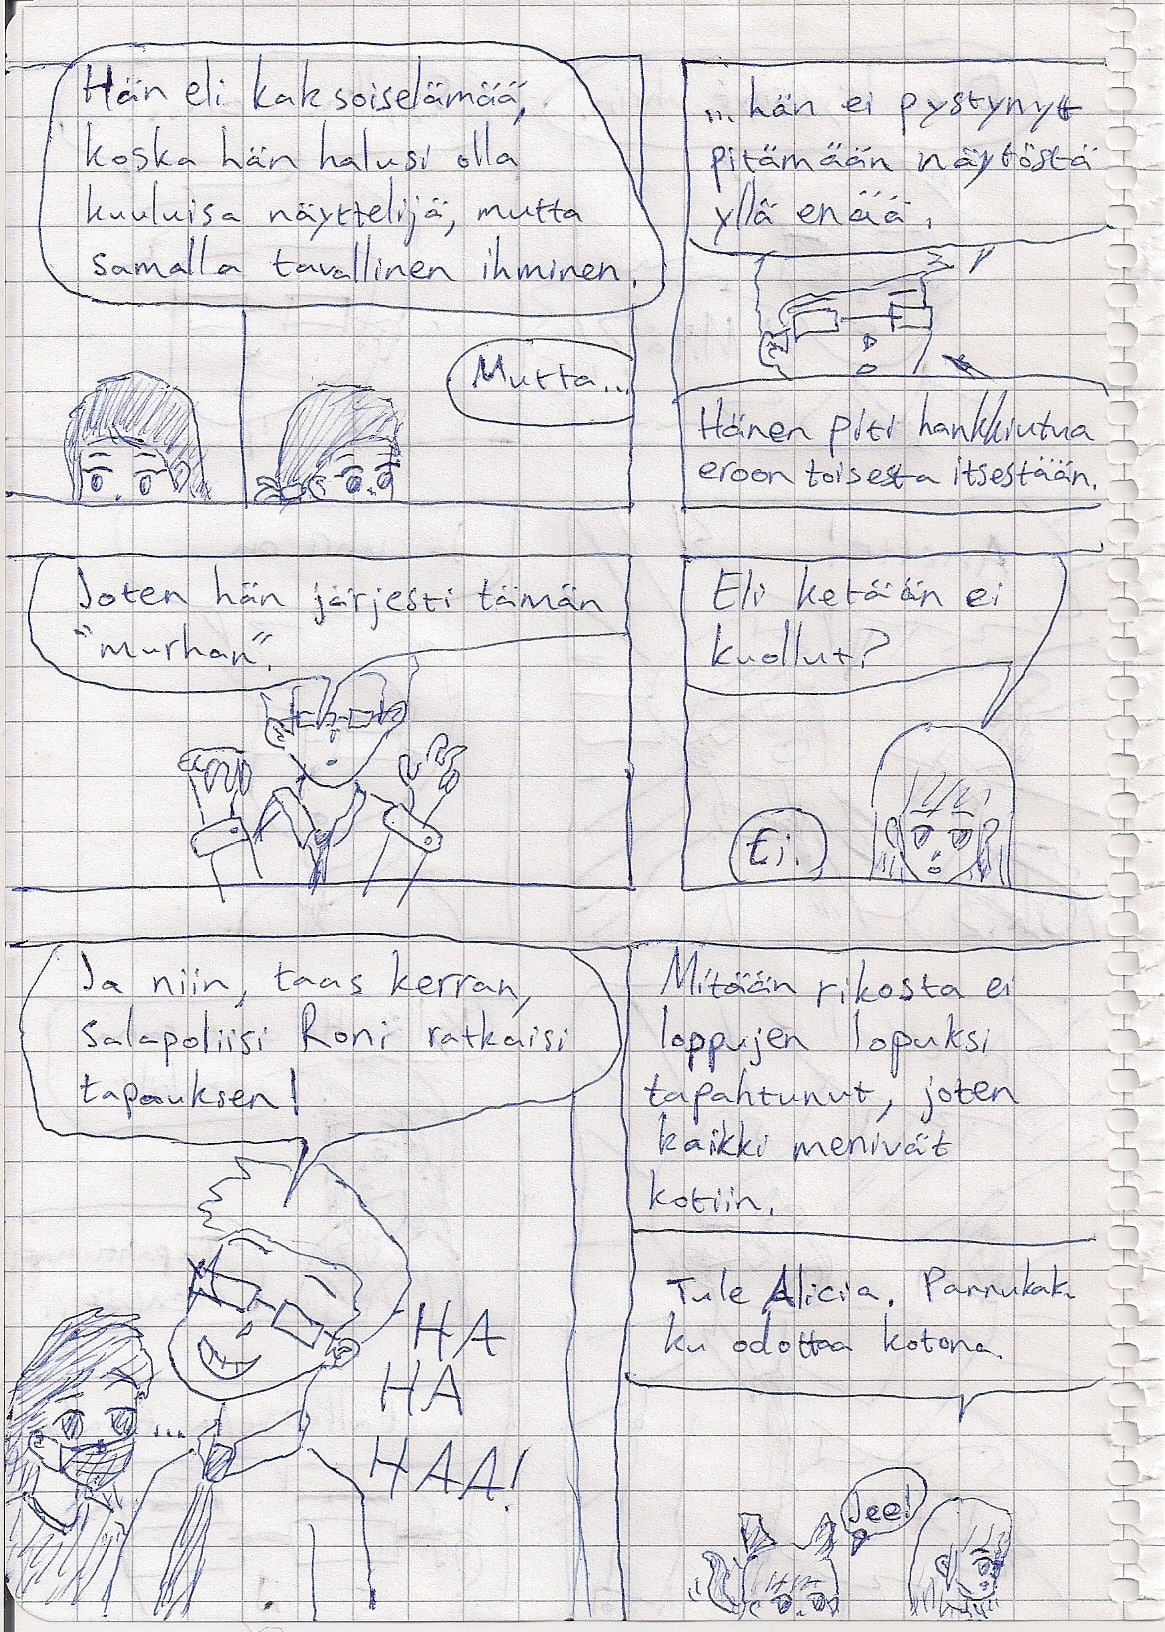 Hän eli kaksoiselämää,
koska hän halusi olla
kuuluisa näyttelijä, mutta
samalla tavallinen ihminen.
Mutta...
...hän ei pystynyt
pitämään näytöstä
yllä enää.
Hänen piti hankkiutua
eroon toisesta itsestään.
Joten hän järjesti tämän
"murhan".
Eli ketään ei
kuollut?
Ei.
Ja niin, taas kerran,
salapoliisi Roni ratkaisi
tapauksen!
...
HA
HA
HAA!
Mitään rikosta ei
loppujen lopuksi
tapahtunut, joten
kaikki menivät
kotiin.
Tule Alicia. Pannukak-
ku odottaa kotona.
Jee!